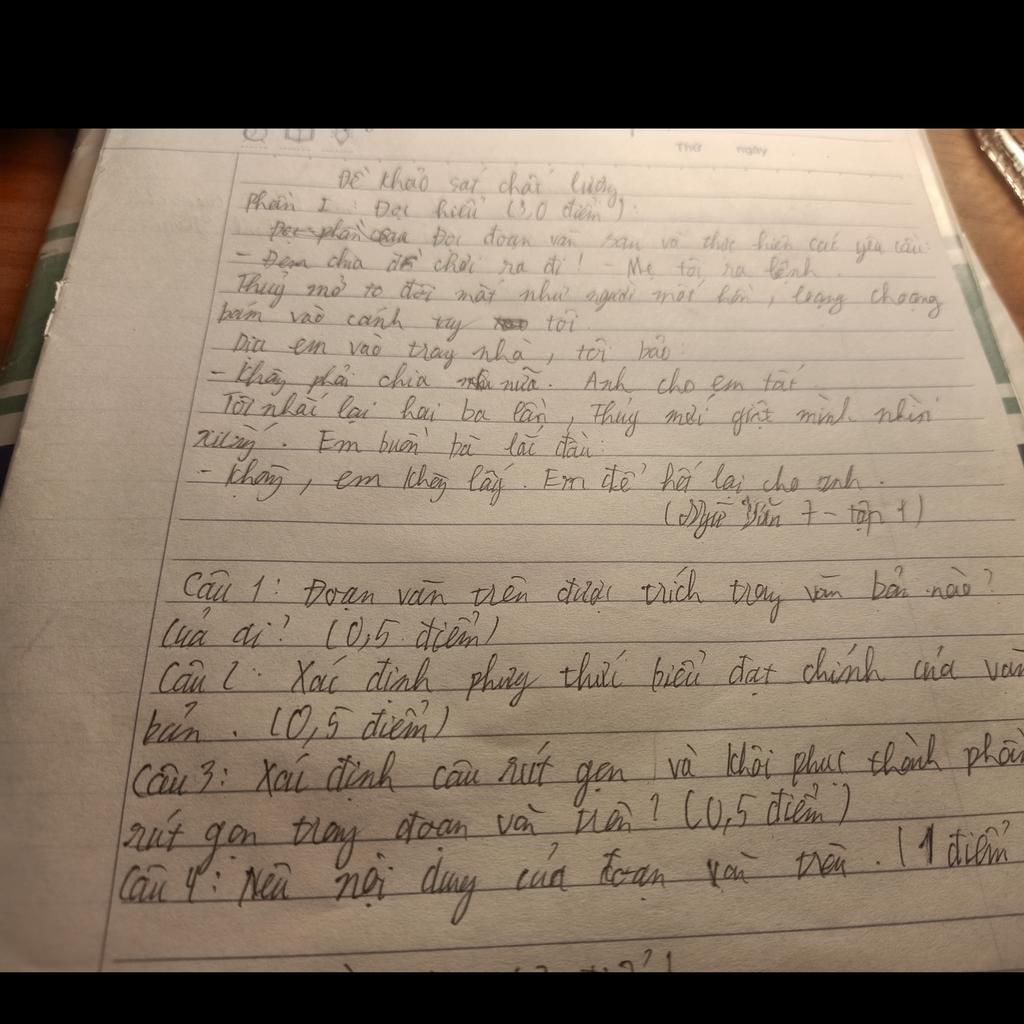 Thứ ngày
Đề khảo sát chất lượng
Phần I: Đọc hiểu (3,0 điểm):
Đọc đoạn văn sau và thực hiện các yêu cầu:
- Đem chia đồ chơi ra đi! - Mẹ tôi ra lệnh.
Thuỷ mở to đôi mắt như người mất hồn, loạng choạng
bám vào cánh tay tôi.
Dìu em vào trong nhà, tôi bảo:
- Không phải chia nữa. Anh cho em tất
Tôi nhắc lại hai ba lần, Thuỷ mới giật mình nhìn
xuống. Em buồn bã lắc đầu:
- Không, em không lấy. Em để hết lại cho anh.
(Ngữ Văn 7 - tập 1)
Câu 1: Đoạn văn trên được trích trong văn bản nào?
Của ai? (0,5 điểm)
Câu 2: Xác định phương thức biểu đạt chính của văn
bản. (0,5 điểm)
Câu 3: Xác định câu rút gọn và khôi phục thành phần
rút gọn trong đoạn văn trên? (0,5 điểm)
Câu 4: Nêu nội dung của đoạn văn trên. (1 điểm